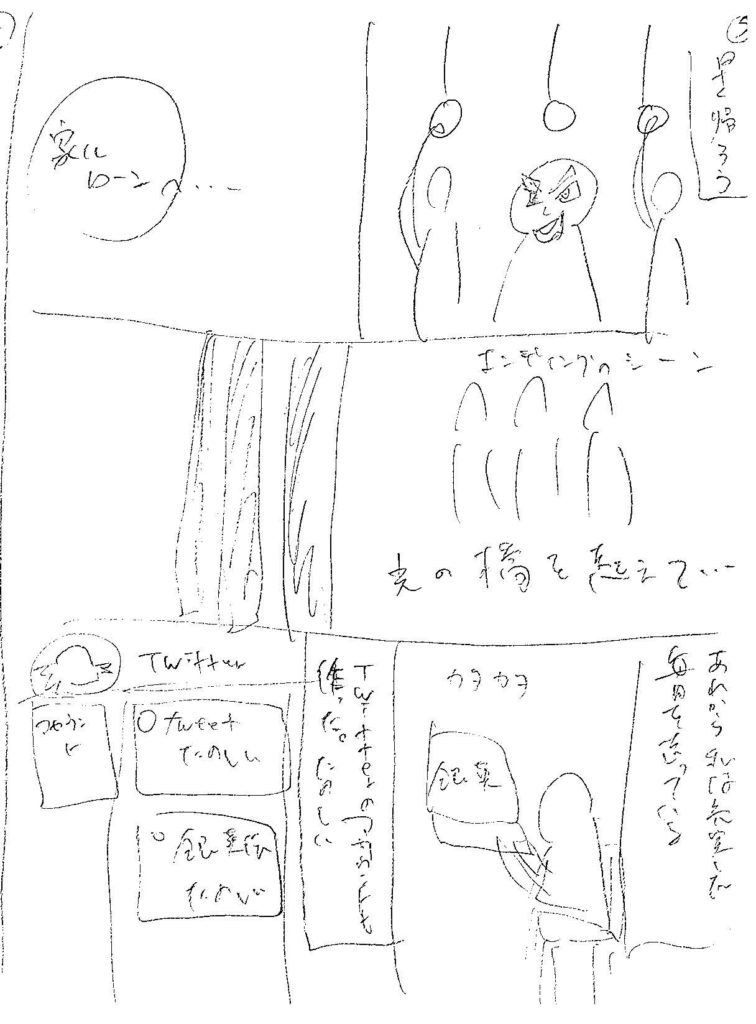 早く帰ろう
家に
ローンへ…
エンディングのシーン
光の橋を越えて…
あれから私は充実した
毎日を送っている
カタカタ
銀英
Twitterのアカウントも
作った。たのしい
Twitter
アカウント
tweet
たのしい
銀英伝
たのしい